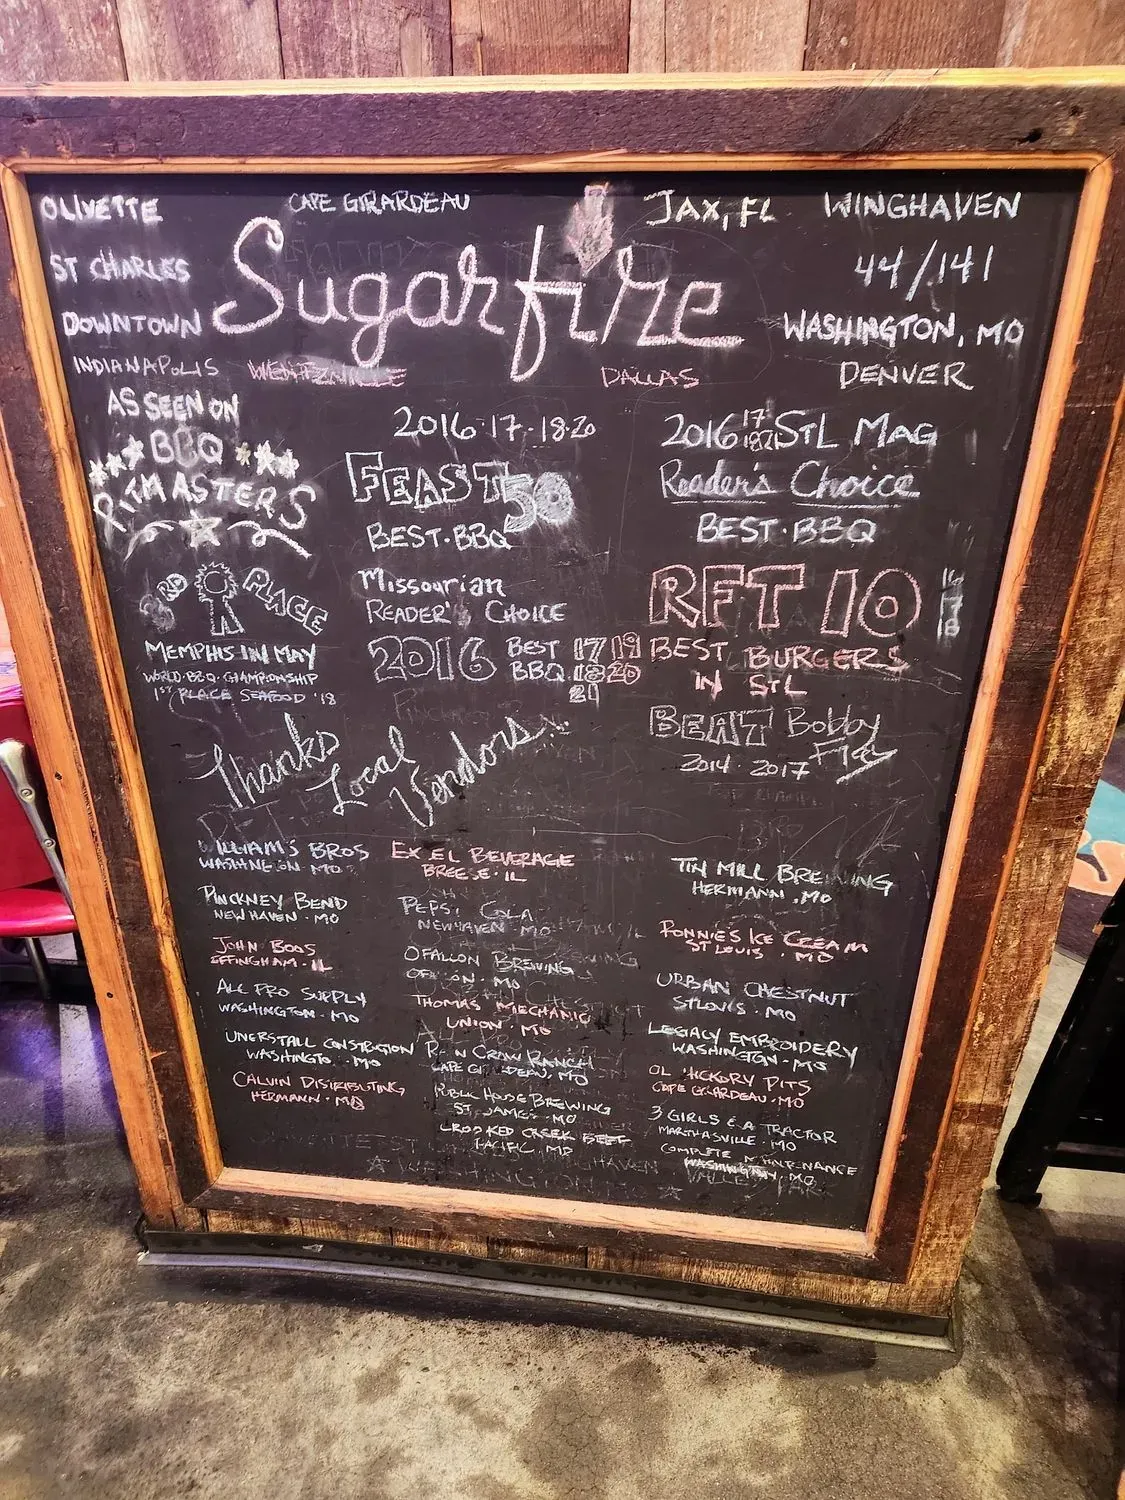 OLIVETTE
CAPE GIRARDEAU
JAX, FL
WINGHAVEN
ST CHARLES
Sugarfire
44/141
DOWNTOWN
WASHINGTON, MO
INDIANAPOLIS
WENTZVILLE
DALLAS
DENVER
AS SEEN ON
BBQ
PITMASTERS
3RD PLACE
MEMPHIS IN MAY
WORLD BBQ CHAMPIONSHIP
1ST PLACE SEAFOOD '18
2016·17·18·20
FEAST 50
BEST·BBQ
Missourian
READER'S CHOICE
2016 BEST 17 19
BBQ 18 20
21
2016 17 STL MAG
Reader's Choice
BEST·BBQ
RFT 10 16 17 18
BEST BURGERS
IN STL
BEAT Bobby
Flay
2014 · 2017
Thanks
Local
Vendors
WILLIAM'S BROS
WASHINGTON · MO
PINCKNEY BEND
NEW HAVEN · MO
JOHN BOOS
EFFINGHAM · IL
ALL PRO SUPPLY
WASHINGTON · MO
UNERSTALL CONSTRUCTION
WASHINGTON · MO
CALVIN DISTRIBUTING
HERMANN · MO
EXCEL BEVERAGE
BREESE · IL
PEPSI COLA
NEWHAVEN MO
OFALLON BREWING
OFALLON · MO
THOMAS MECHANIC
UNION · MO
RAIN CROW RANCH
CAPE GIRARDEAU, MO
PUBLIC HOUSE BREWING
ST. JAMES · MO
CROOKED CREEK BEEF
PACIFIC, MO
TIN MILL BREWING
HERMANN, MO
RONNIE'S ICE CREAM
ST LOUIS · MO
URBAN CHESTNUT
ST LOUIS · MO
LEGACY EMBROIDERY
WASHINGTON · MO
OL HICKORY PITS
CAPE GIRARDEAU · MO
3 GIRLS & A TRACTOR
MARTHASVILLE · MO
COMPLETE MAINTENANCE
WASHINGTON, MO